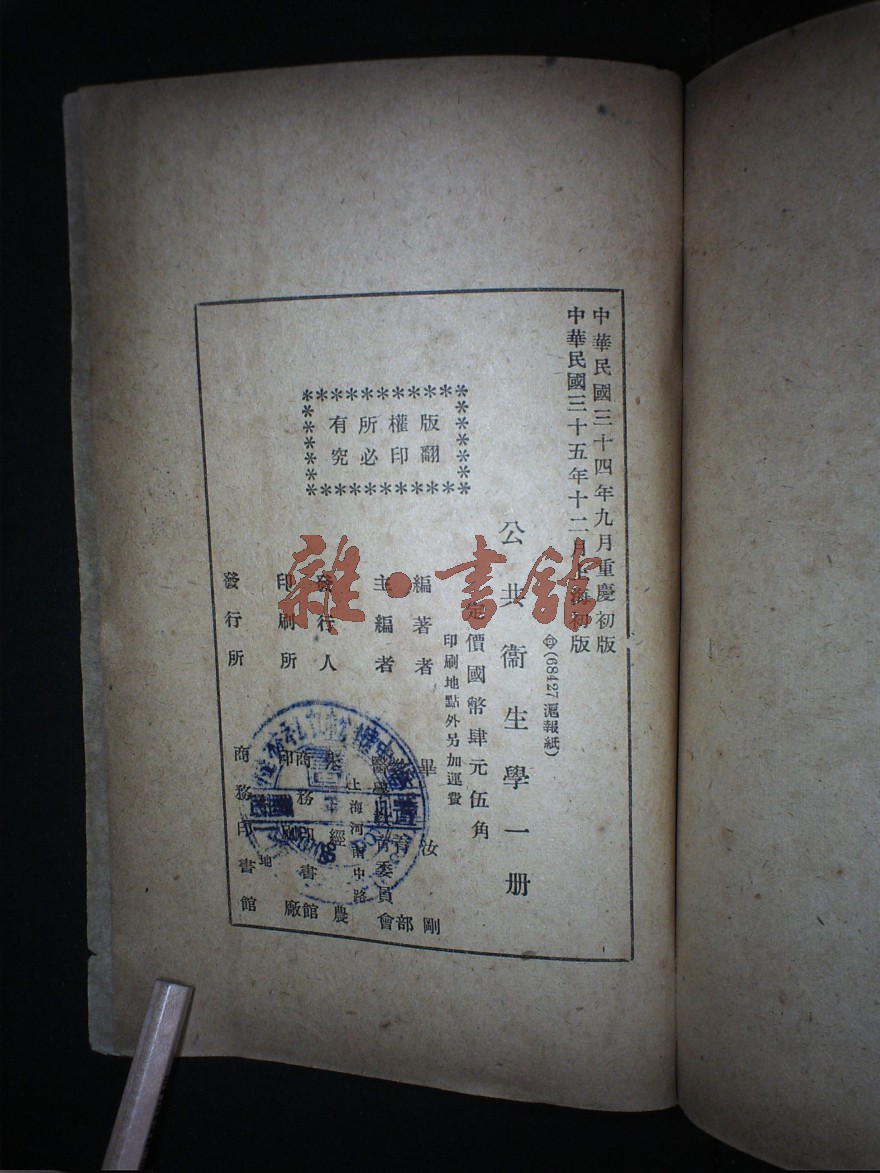 中華民國三十四年九月重慶初版
中華民國三十五年十二月上海初版
(68427 滬報紙)
公共衞生學一册
定價國幣肆元伍角
印刷地點外另加運費
版權所有
翻印必究
編著者 畢汝剛
主編者 教育部
醫學教育委員會
上海河南中路
發行人 朱經農
印刷所 商務印書館
印刷廠
發行所 商務印書館
各地
雜·書館